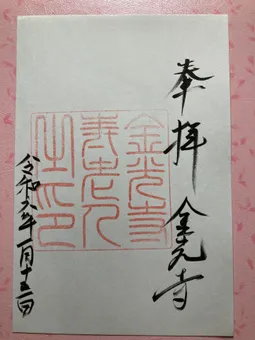 奉拝 金光寺
金光寺
寿老人
之印
令和六年一月十日